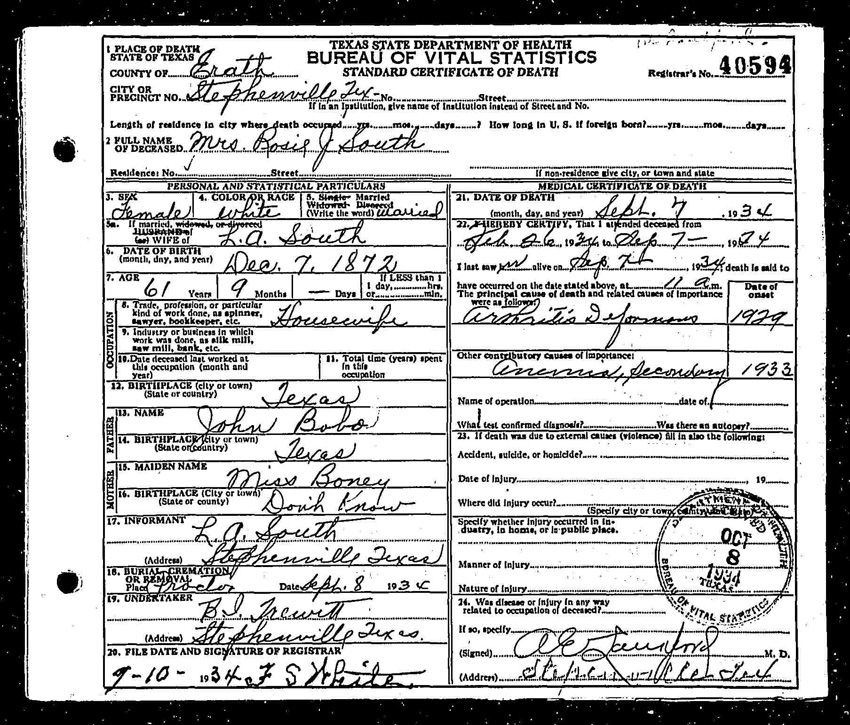 TEXAS STATE DEPARTMENT OF HEALTH
BUREAU OF VITAL STATISTICS
STANDARD CERTIFICATE OF DEATH
1 PLACE OF DEATH
STATE OF TEXAS
COUNTY OF Erath
Registrar's No. 40594
CITY OR
PRECINCT NO. Stephenville Tex- No. Street
If in an Institution, give name of Institution instead of Street and No.
Length of residence in city where death occurred yrs. mos. days ? How long in U. S. if foreign born? yrs. mos. days
2 FULL NAME
OF DECEASED Mrs. Rosie J South
Residence: No. Street
If non-residence give city, or town and state
PERSONAL AND STATISTICAL PARTICULARS
3. SEX Female
4. COLOR OR RACE white
5. Single Married
Widowed Divorced
(Write the word) Married
5a. If married, widowed, or divorced
HUSBAND of
(or) WIFE of L.A. South
6. DATE OF BIRTH
(month, day, and year) Dec. 7, 1872
7. AGE 61 Years 9 Months — Days
If LESS than 1
1 day, hrs.
or min.
OCCUPATION
8. Trade, profession, or particular
kind of work done, as spinner,
sawyer, bookkeeper, etc. Housewife
9. Industry or business in which
work was done, as silk mill,
saw mill, bank, etc.
10. Date deceased last worked at
this occupation (month and
year)
11. Total time (years) spent
in this
occupation
12. BIRTHPLACE (city or town)
(State or country) Texas
FATHER
13. NAME John Bobo
14. BIRTHPLACE (city or town)
(State or country) Texas
MOTHER
15. MAIDEN NAME Miss Boney
16. BIRTHPLACE (City or town)
(State or country) Don't Know
17. INFORMANT L.A. South
(Address) Stephenville Texas
18. BURIAL, CREMATION
OR REMOVAL
Place Proctor Date Sept. 8 1934
19. UNDERTAKER B.J. Trewitt
(Address) Stephenville Texas.
20. FILE DATE AND SIGNATURE OF REGISTRAR
9-10- 1934 F S White
MEDICAL CERTIFICATE OF DEATH
21. DATE OF DEATH
(month, day, and year) Sept. 7 1934
22. I HEREBY CERTIFY, That I attended deceased from
Feb. 26, 1934 to Sep 7- 1934
I last saw alive on Sep 7 1934, death is said to
have occurred on the date stated above, at 11 a m.
The principal cause of death and related causes of importance
were as follows:
Date of
onset
Arthritis Deformans 1929
Other contributory causes of importance:
Anemia, Secondary 1933
Name of operation date of
What test confirmed diagnosis? Was there an autopsy?
23. If death was due to external causes (violence) fill in also the following:
Accident, suicide, or homicide?
Date of injury , 19
Where did injury occur?
(Specify city or town, county and State)
Specify whether injury occurred in in-
dustry, in home, or in public place.
Manner of injury
Nature of injury
24. Was disease or injury in any way
related to occupation of deceased?
If so, specify
(Signed) M. D.
(Address) Stephenville Tex
DEPARTMENT OF HEALTH
REC'D
OCT
8
1934
TEXAS
BUREAU OF VITAL STATISTICS